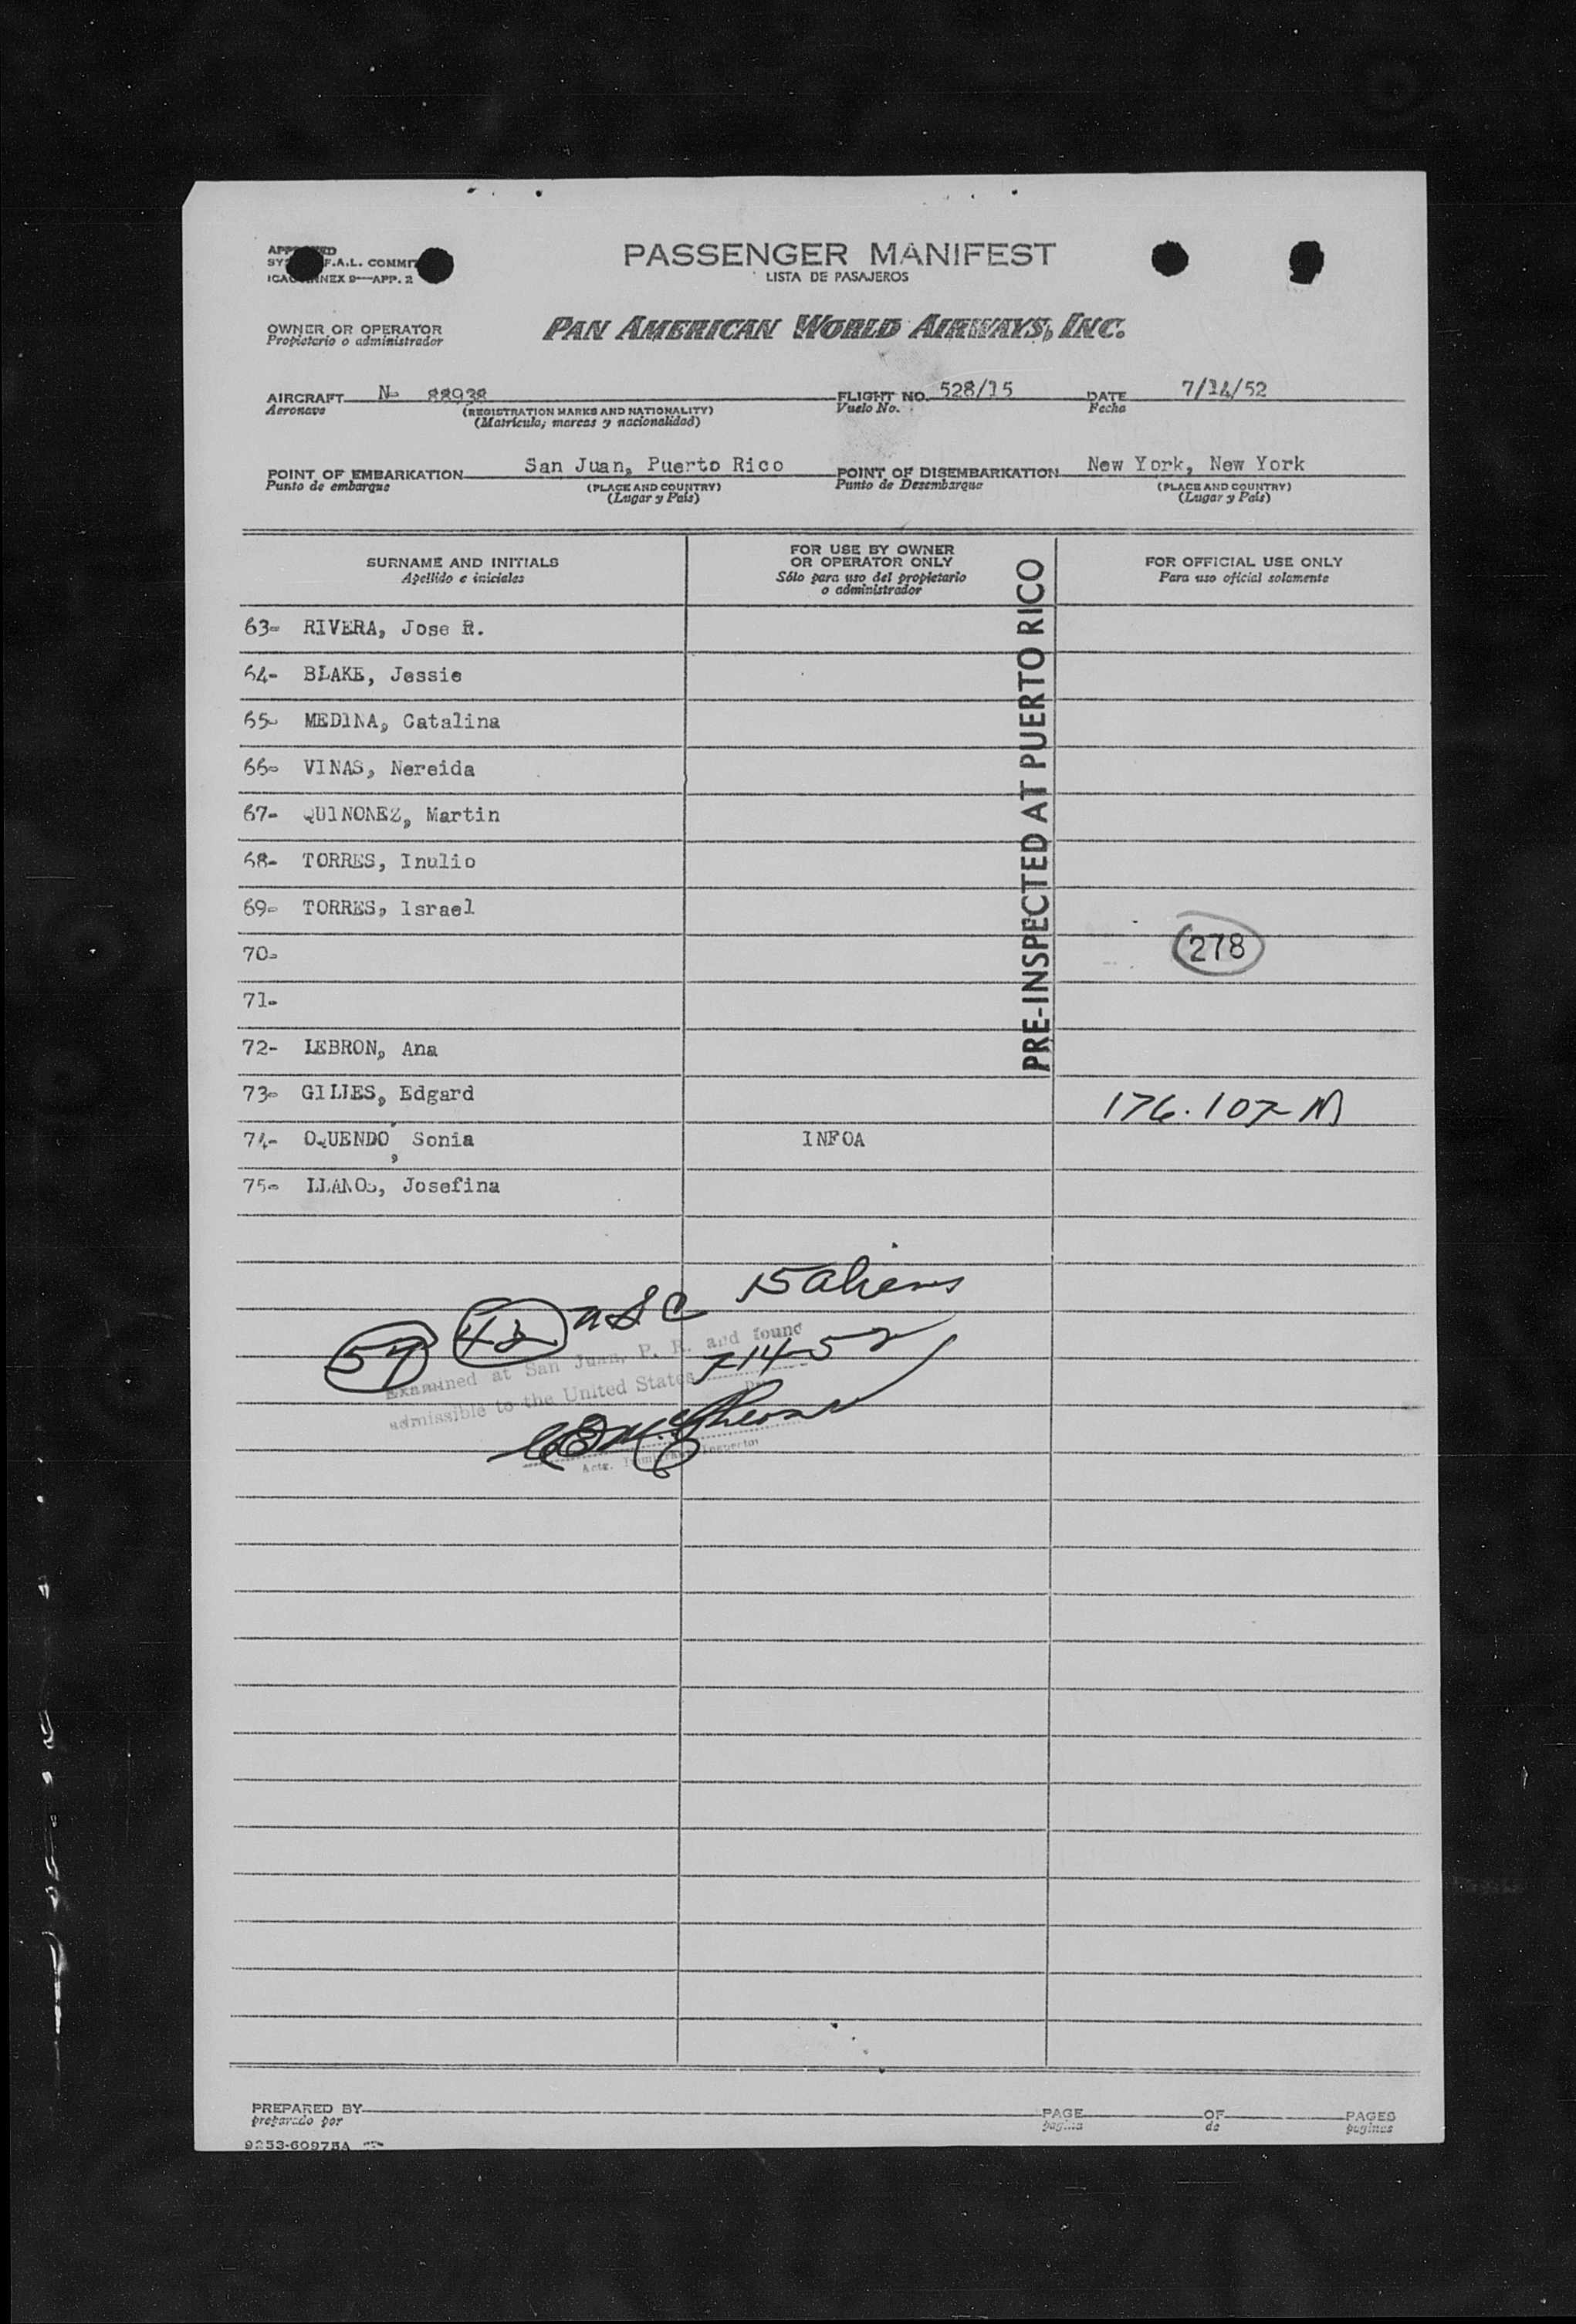 PASSENGER MANIFEST
LISTA DE PASAJEROS
F.A.L.
9—APP. 2
OWNER OR OPERATOR
Propietario o administrador
PAN AMERICAN WORLD AIRWAYS, INC.
AIRCRAFT N- 88938 FLIGHT NO. 528/15 DATE 7/14/52
Aeronave (REGISTRATION MARKS AND NATIONALITY) Vuelo No. Fecha
(Matrícula, marcas y nacionalidad)
POINT OF EMBARKATION San Juan, Puerto Rico POINT OF DISEMBARKATION New York, New York
Punto de embarque (PLACE AND COUNTRY) Punto de Desembarque (PLACE AND COUNTRY)
(Lugar y País) (Lugar y País)
SURNAME AND INITIALS
Apellido e iniciales
FOR USE BY OWNER
OR OPERATOR ONLY
Sólo para uso del propietario
o administrador
FOR OFFICIAL USE ONLY
Para uso oficial solamente
PRE-INSPECTED AT PUERTO RICO
63- RIVERA, Jose R.
64- BLAKE, Jessie
65- MEDINA, Catalina
66- VINAS, Nereida
67- QUINONEZ, Martin
68- TORRES, Inulio
69- TORRES, Israel
70- 278
71-
72- LEBRON, Ana
73- GILIES, Edgard 176.107-M
74- OQUENDO, Sonia INFOA
75- LLANOS, Josefina
15 aliens
42 USC
57
7-14-52
Examined at San Juan, P. R. and found
admissible to the United States
Actg. Immigrant Inspector
PREPARED BY PAGE OF PAGES
preparado por pagina de paginas
9253-60975A